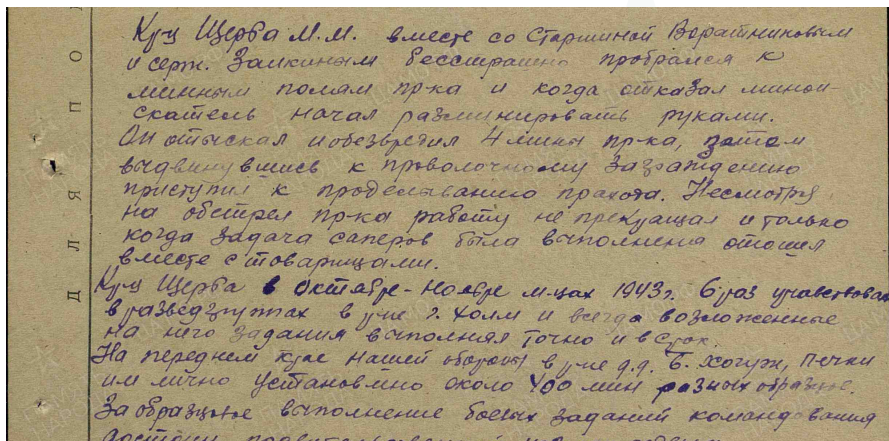 Кр-ц Щерба М.М. вместе со Старшиной Воратниковым
и серж. Заикиным бесстрашно пробрался к
минным полям пр-ка и когда отказал миноис-
скатель начал разминировать руками.
Он отыскал и обезвредил 4 мины пр-ка, затем
выдвинувшись к проволочному заграждению
приступил к проделыванию прохода. Несмотря
на обстрел пр-ка работу не прекращал и только
когда задача саперов была выполнена отошел
вместе с товарищами.
Кр-ц Щерба в Октябре-Ноябре м-цах 1943г. 6 раз учавствовал
в разведгруппах в р-не г. Холм и всегда возложенные
на него задания выполнял точно и в срок.
На переднем крае нашей обороны в р-не д.д. Б. Печки
им лично установлено около 400 мин разных
За образцовое выполнение боевых заданий командования
достоин
Д Л Я П О